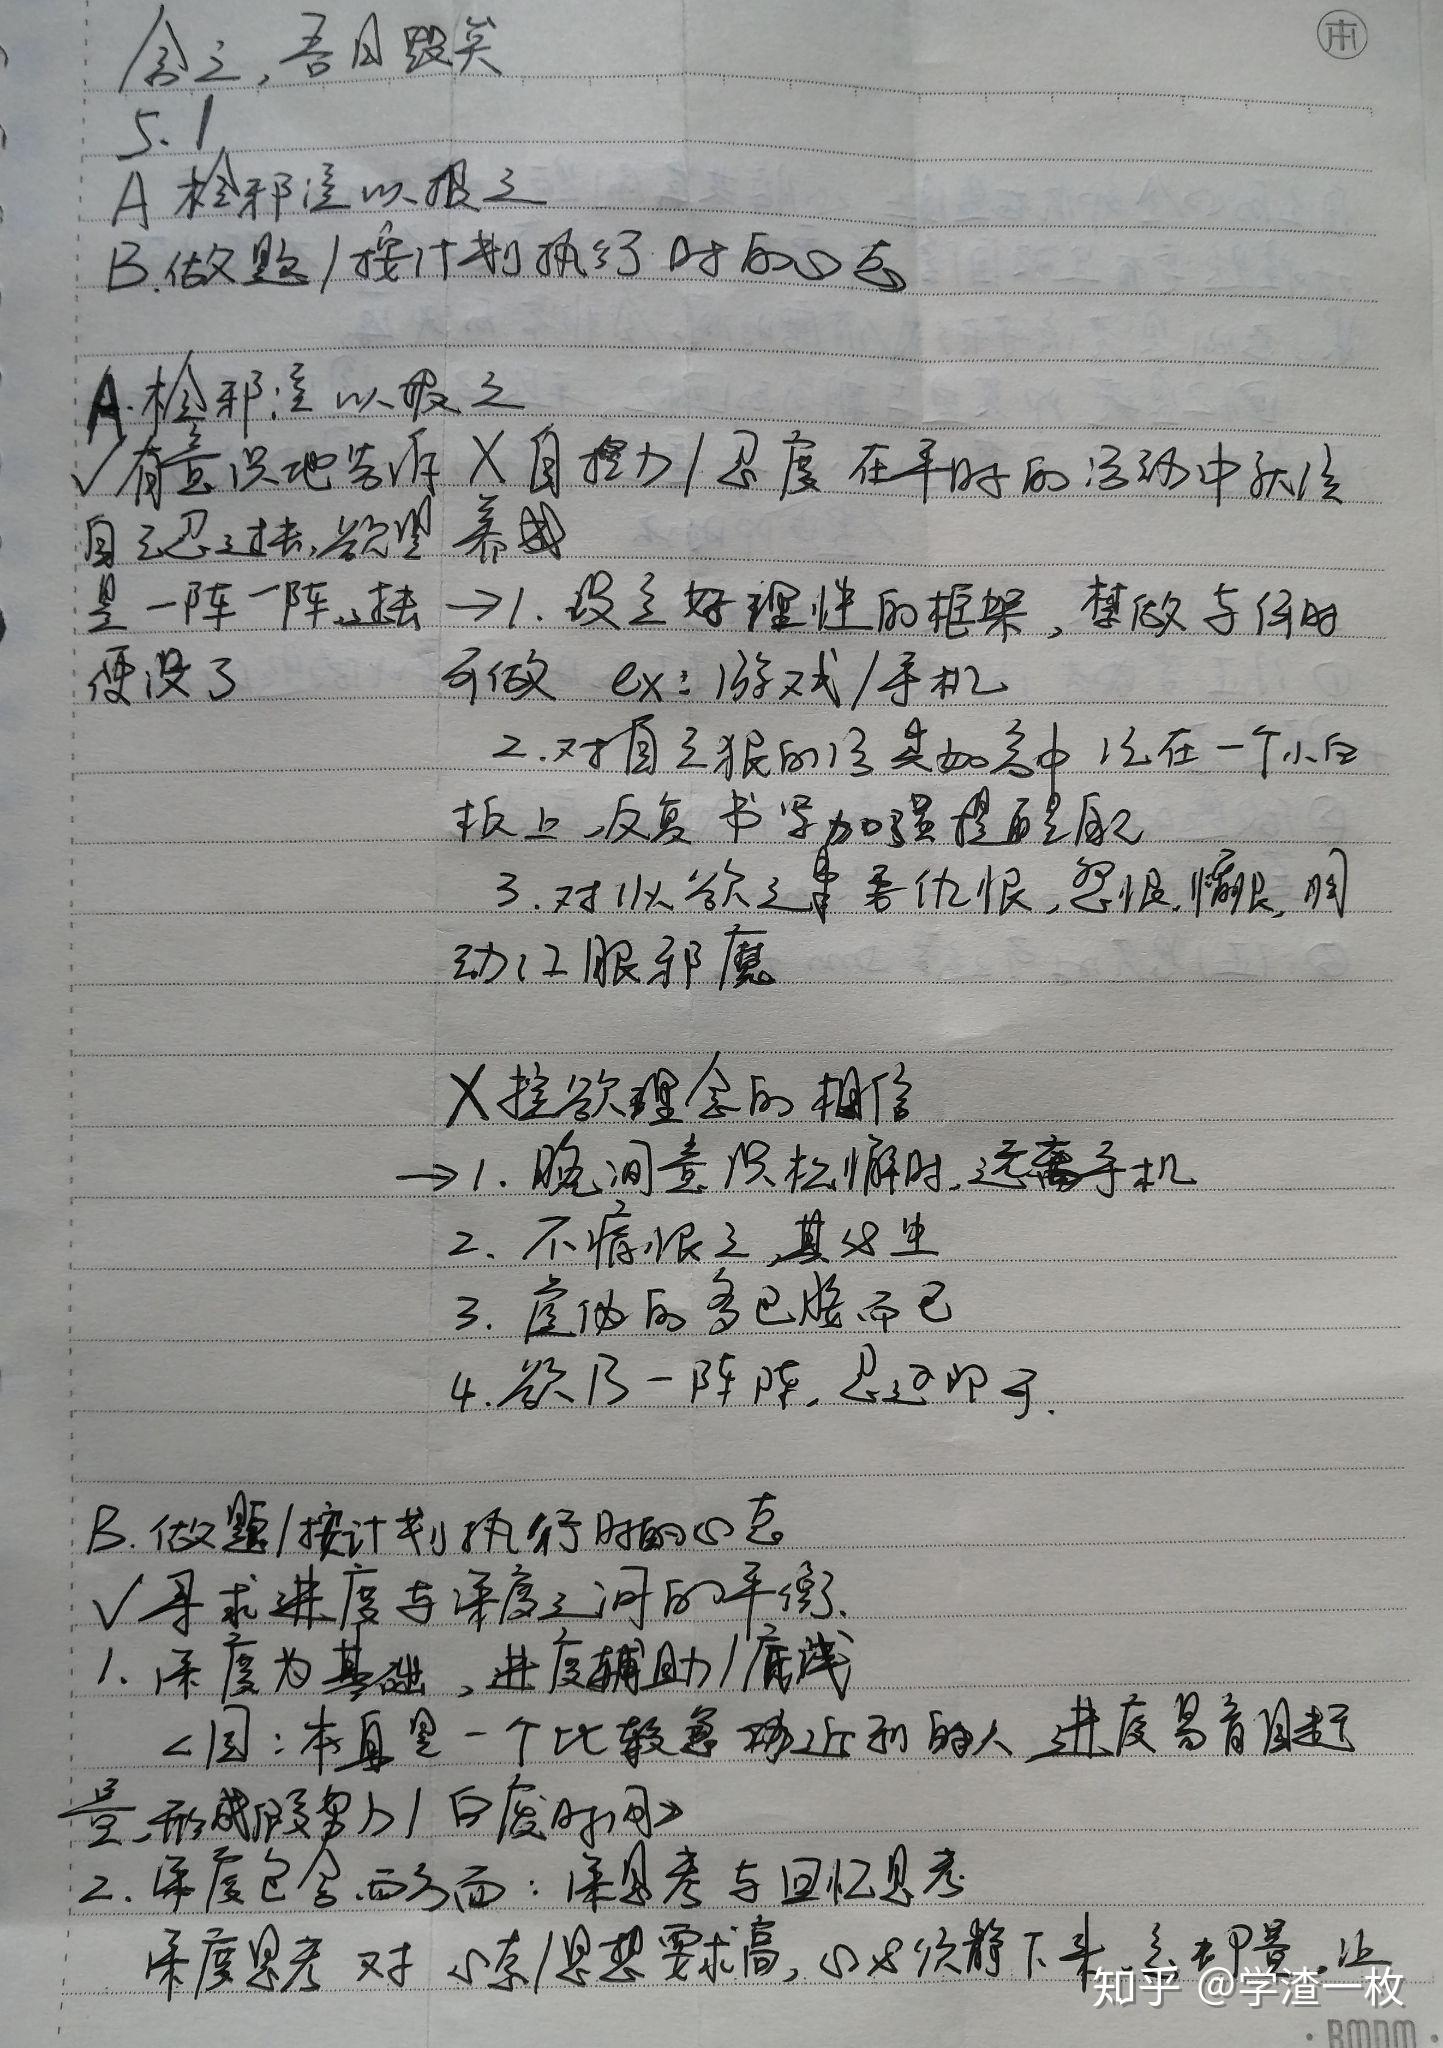 舍之，吾日毁矣
5.1
A 检邪淫以报之
B.做题/按计划执行时的心态
A.检邪淫以报之
√有意识地告诉
自己忍过去，欲望
是一阵一阵，过去
便没了
X自控力/忍度在平时的活动中
养成
→1.设立好理性的框架，禁做与何时
可做 ex：游戏/手机
2.对自己狠的 记在一个小白
板上，反复书写加强提醒自己
3.对以欲之事吾仇恨，怨恨，痛恨，
邪魔
X控欲理念的相信
→1.晚间意识松懈时，远离手机
2.不痛恨之，其必生
3.虚伪的多巴胺而已
4.欲乃一阵阵，忍过即可.
B.做题/按计划执行时的心态
√寻求进度与深度之间的平衡.
1.深度为基础，进度辅助/底线
<因：本身是一个比较急 的人 进度易盲目赶
量，形成假努力/白废时间>
2.深度包含两方面：深思考与回忆思考
深度思考对 /思想要求高，心必须静下来，
知乎 @学渣一枚